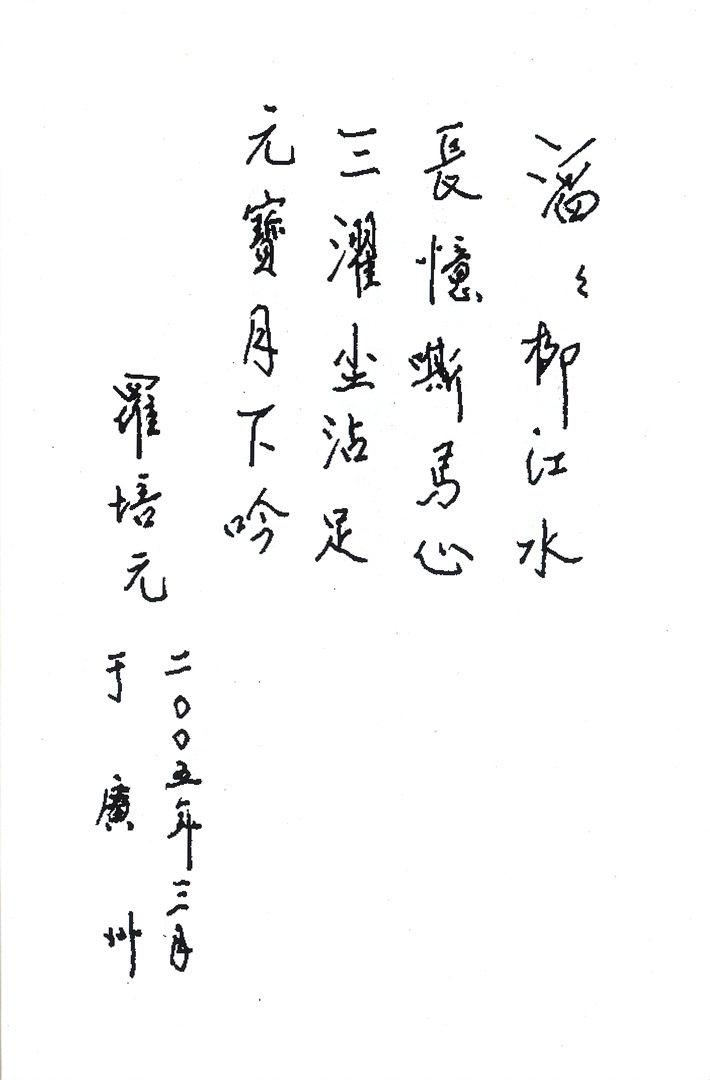 滔々柳江水
長憶嘶馬心
三濯尘沾足
元寶月下吟
羅培元
二〇〇五年三月
于廣州